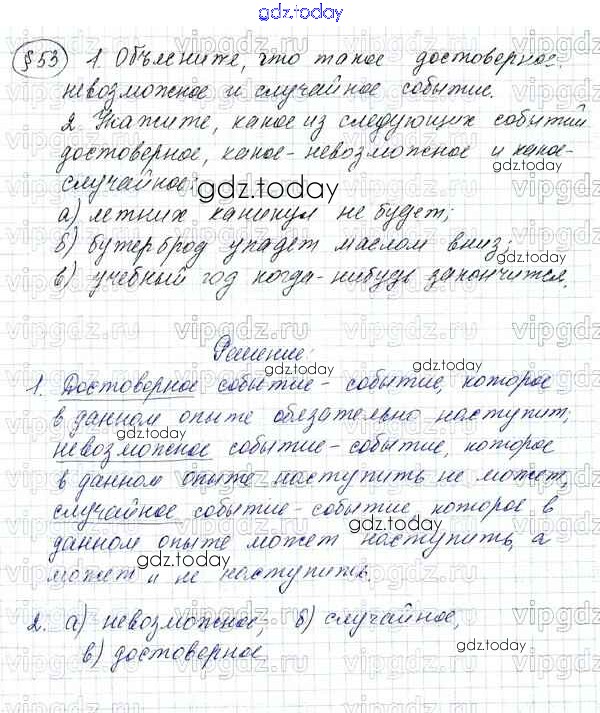 gdz.today
§53 1. Объясните, что такое достоверное,
невозможное и случайное событие.
2. Укажите, какое из следующих событий
достоверное, какое - невозможное и какое -
случайное:
gdz.today
а) летних каникул не будет;
б) бутерброд упадёт маслом вниз;
в) учебный год когда-нибудь закончится.
gdz.today
Решение:
gdz.today
1. Достоверное событие - событие, которое
в данном опыте обязательно наступит,
gdz.today
невозможное событие - событие, которое
в данном опыте наступить не может,
случайное событие - событие, которое в
gdz.today
данном опыте может наступить, а
может и не наступить.
2. а) невозможное; б) случайное,
gdz.today
в) достоверное